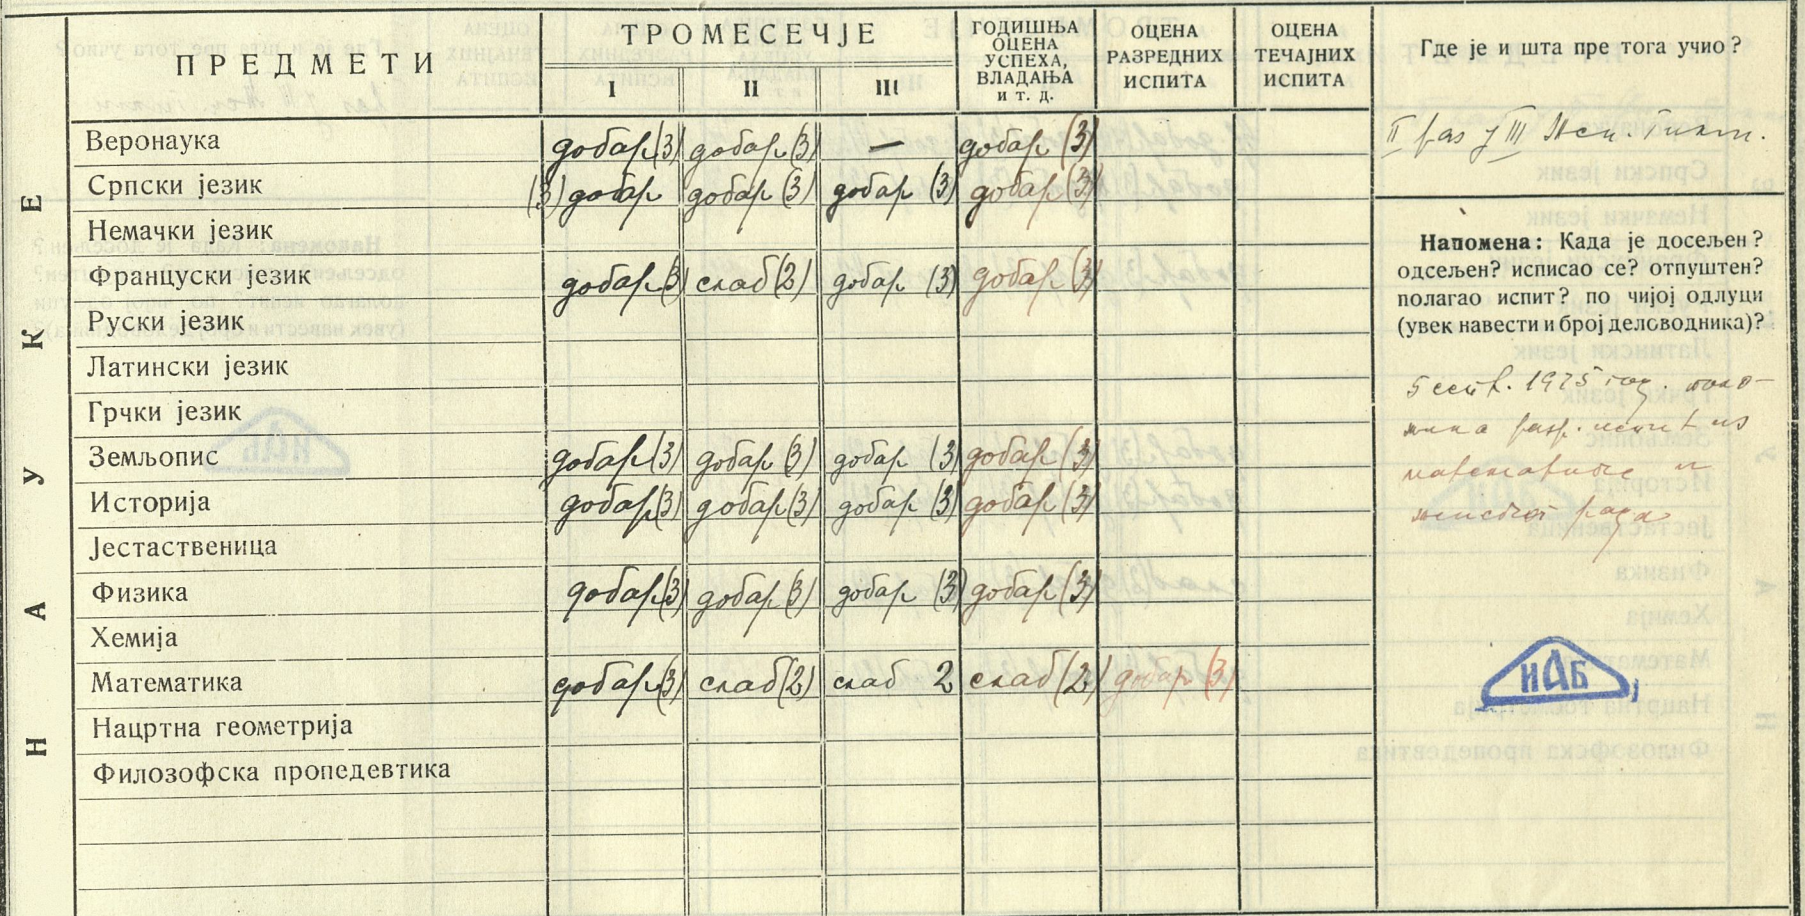 ПРЕДМЕТИ
ТРОМЕСЕЧЈЕ
I II III
ГОДИШЊА
ОЦЕНА
УСПЕХА,
ВЛАДАЊА
И Т. Д.
ОЦЕНА
РАЗРЕДНИХ
ИСПИТА
ОЦЕНА
ТЕЧАЈНИХ
ИСПИТА
НАУКЕ
Веронаука добар (3) добар (3) — добар (3)
Српски језик (3) добар добар (3) добар (3) добар (3)
Немачки језик
Француски језик добар (3) слаб (2) добар (3) добар (3)
Руски језик
Латински језик
Грчки језик
Земљопис добар (3) добар (3) добар (3) добар (3)
Историја добар (3) добар (3) добар (3) добар (3)
Јестаственица
Физика добар (3) добар (3) добар (3) добар (3)
Хемија
Математика добар (3) слаб (2) слаб 2 слаб (2) добар (3)
Нацртна геометрија
Филозофска пропедевтика
Где је и шта пре тога учио?
II раз у III Жен. Гимн.
Напомена: Када је досељен?
одсељен? исписао се? отпуштен?
полагао испит? по чијој одлуци
(увек навести и број деловодника)?
5 септ. 1925 год. поло-
жила разр. испит из
математике и
женског рада
ИАБ